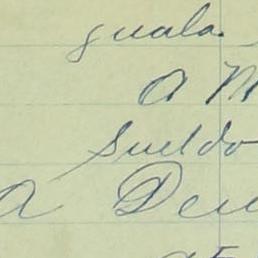 guala
a M
Sueldo
a Deu